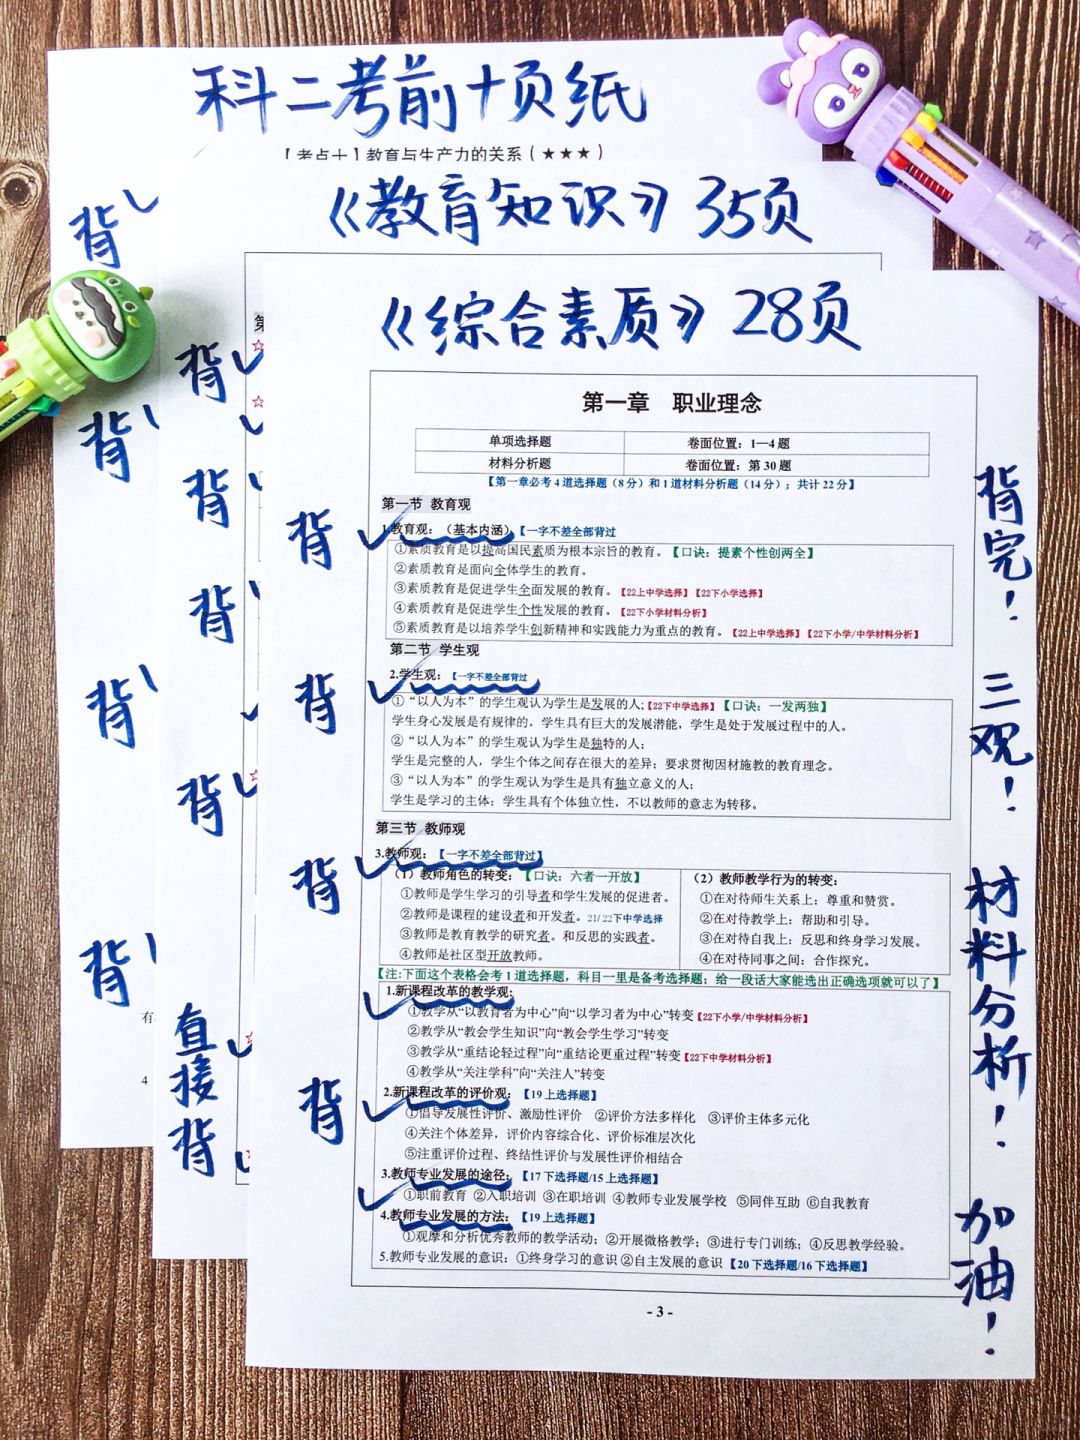 科二考前十页纸
【考点十】教育与生产力的关系(★★★)
背
《教育知识》35页
背
背
背
背
背
背
背
直接背
第
有
4
《综合素质》28页
第一章 职业理念
单项选择题 卷面位置:1—4题
材料分析题 卷面位置:第30题
【第一章必考4道选择题(8分)和1道材料分析题(14分);共计22分】
第一节 教育观
背
1.教育观:(基本内涵)【一字不差全部背过
①素质教育是以提高国民素质为根本宗旨的教育。【口诀:提素个性创两全】
②素质教育是面向全体学生的教育。
③素质教育是促进学生全面发展的教育。【22上中学选择】【22下小学选择】
④素质教育是促进学生个性发展的教育。【22下小学材料分析】
⑤素质教育是以培养学生创新精神和实践能力为重点的教育。【22上中学选择】【22下小学/中学材料分析】
第二节 学生观
背
2.学生观:【一字不差全部背过
①“以人为本”的学生观认为学生是发展的人;【22下中学选择】【口诀:一发两独】
学生身心发展是有规律的,学生具有巨大的发展潜能,学生是处于发展过程中的人。
②“以人为本”的学生观认为学生是独特的人;
学生是完整的人,学生个体之间存在很大的差异;要求贯彻因材施教的教育理念。
③“以人为本”的学生观认为学生是具有独立意义的人;
学生是学习的主体;学生具有个体独立性,不以教师的意志为转移。
第三节 教师观
背
3.教师观:【一字不差全部背过】
(1)教师角色的转变:【口诀:六者一开放】
①教师是学生学习的引导者和学生发展的促进者。
②教师是课程的建设者和开发者。21/22下中学选择
③教师是教育教学的研究者。和反思的实践者。
④教师是社区型开放教师。
(2)教师教学行为的转变:
①在对待师生关系上:尊重和赞赏。
②在对待教学上:帮助和引导。
③在对待自我上:反思和终身学习发展。
④在对待同事之间:合作探究。
【注:下面这个表格会考1道选择题,科目一里是备考选择题;给一段话大家能选出正确选项就可以了】
1.新课程改革的教学观:
①教学从“以教育者为中心”向“以学习者为中心”转变【22下小学/中学材料分析】
②教学从“教会学生知识”向“教会学生学习”转变
③教学从“重结论轻过程”向“重结论更重过程”转变【22下中学材料分析】
④教学从“关注学科”向“关注人”转变
背
2.新课程改革的评价观:【19上选择题】
①倡导发展性评价、激励性评价 ②评价方法多样化 ③评价主体多元化
④关注个体差异,评价内容综合化、评价标准层次化
⑤注重评价过程、终结性评价与发展性评价相结合
3.教师专业发展的途径:【17下选择题/15上选择题】
①职前教育 ②入职培训 ③在职培训 ④教师专业发展学校 ⑤同伴互助 ⑥自我教育
4.教师专业发展的方法:【19上选择题】
①观摩和分析优秀教师的教学活动;②开展微格教学;③进行专门训练;④反思教学经验。
5.教师专业发展的意识:①终身学习的意识 ②自主发展的意识【20下选择题/16下选择题】
- 3 -
背完!
三观!
材料分析!
加油!